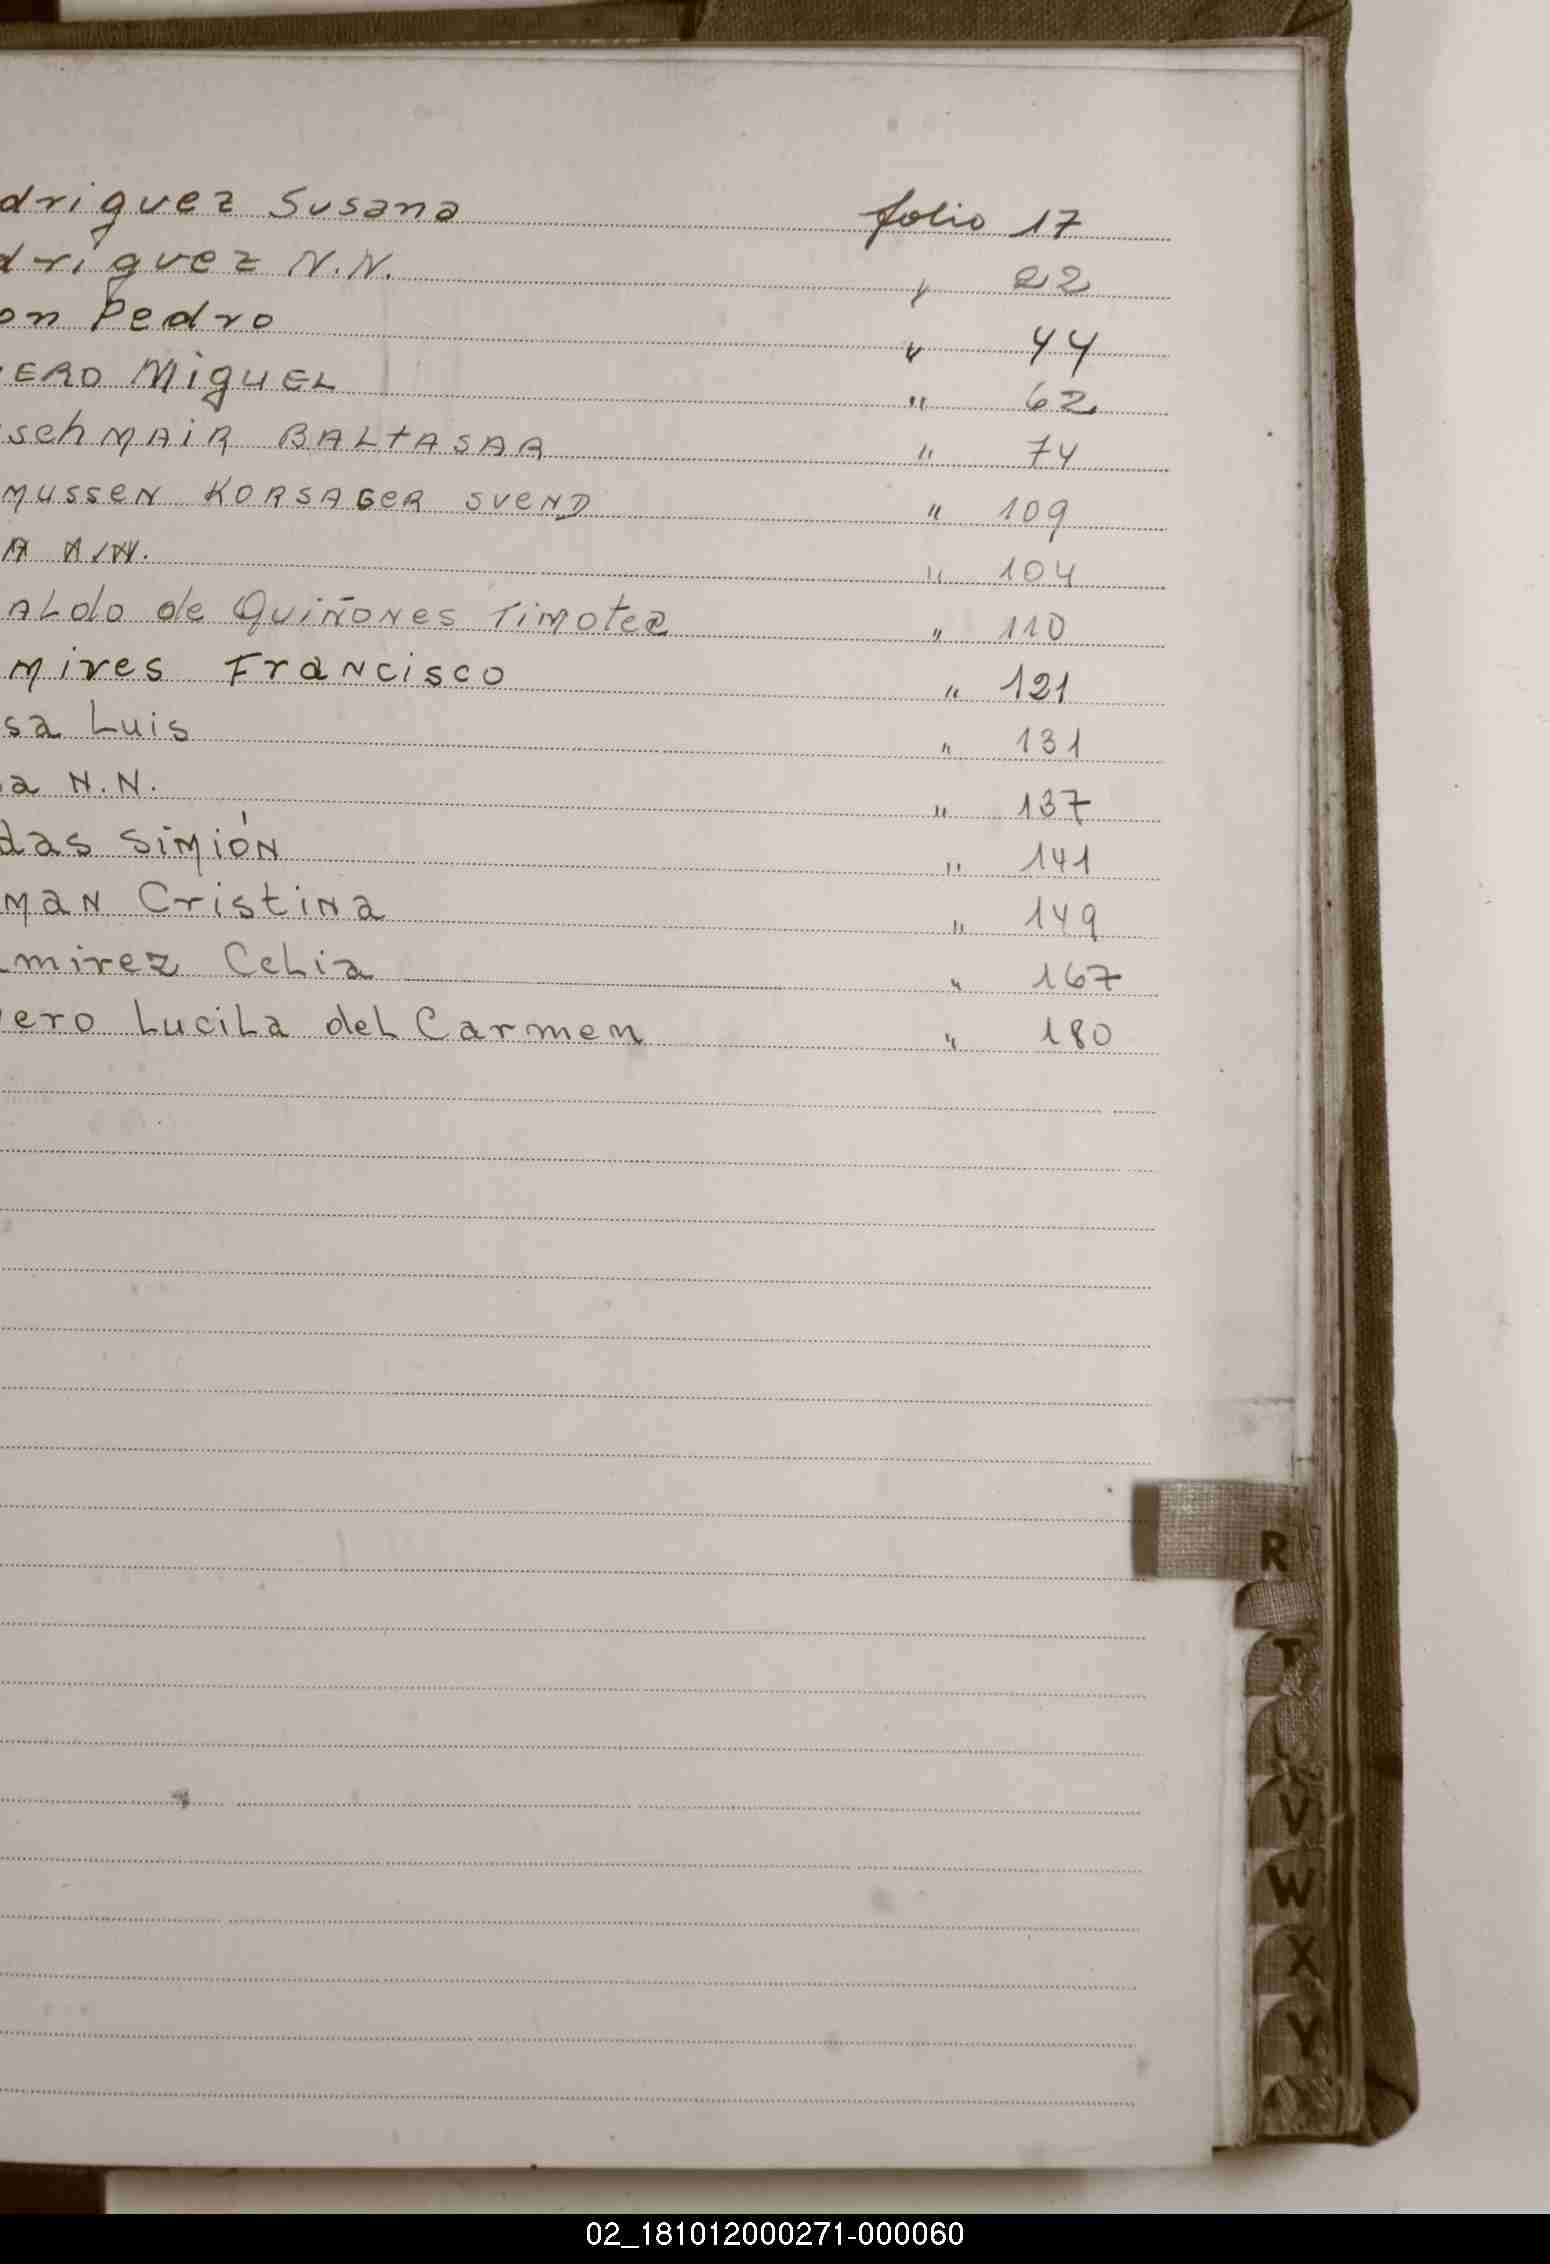 driguez Susana folio 17
driguez N.N. " 22
on Pedro " 44
ERO MIGUEL " 62
schMAIR BALTASAR " 74
MUSSEN KORSAGER SVEND " 109
A N.N. " 104
ALdo de QUIÑONES TIMOTEA " 110
Mires Francisco " 121
sa Luis " 131
a N.N. " 137
das SIMIÓN " 141
man Cristina " 149
mirez Celia " 167
ero Lucila del Carmen " 180
R
T
V
W
X
Y
02_181012000271-000060